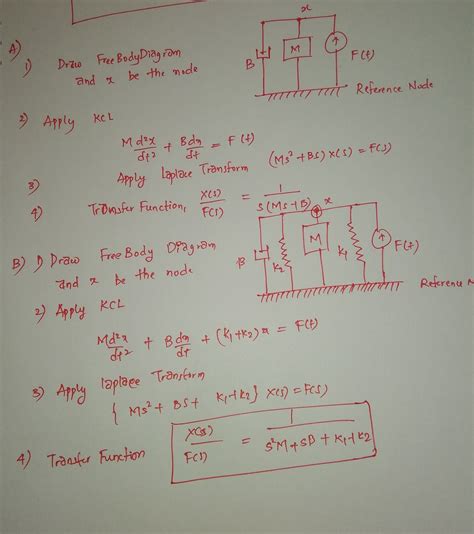 A)
1) Draw Free Body Diagram
and x be the node
x
B
M
F(t)
Reference Node
2) Apply KCL
M d²x/dt² + B dx/dt = F(t)
3) Apply Laplace Transform (Ms² + BS) X(s) = F(s)
4) Transfer Function, X(s)/F(s) = 1/S(Ms+B)
B) 1) Draw Free Body Diagram
and x be the node
x
B
K2
M
K1
F(t)
Reference N
2) Apply KCL
M d²x/dt² + B dx/dt + (K1+K2) x = F(t)
3) Apply Laplace Transform
{ Ms² + BS + K1+K2 } X(s) = F(s)
4) Transfer Function X(s)/F(s) = 1/S²M+SB+K1+K2